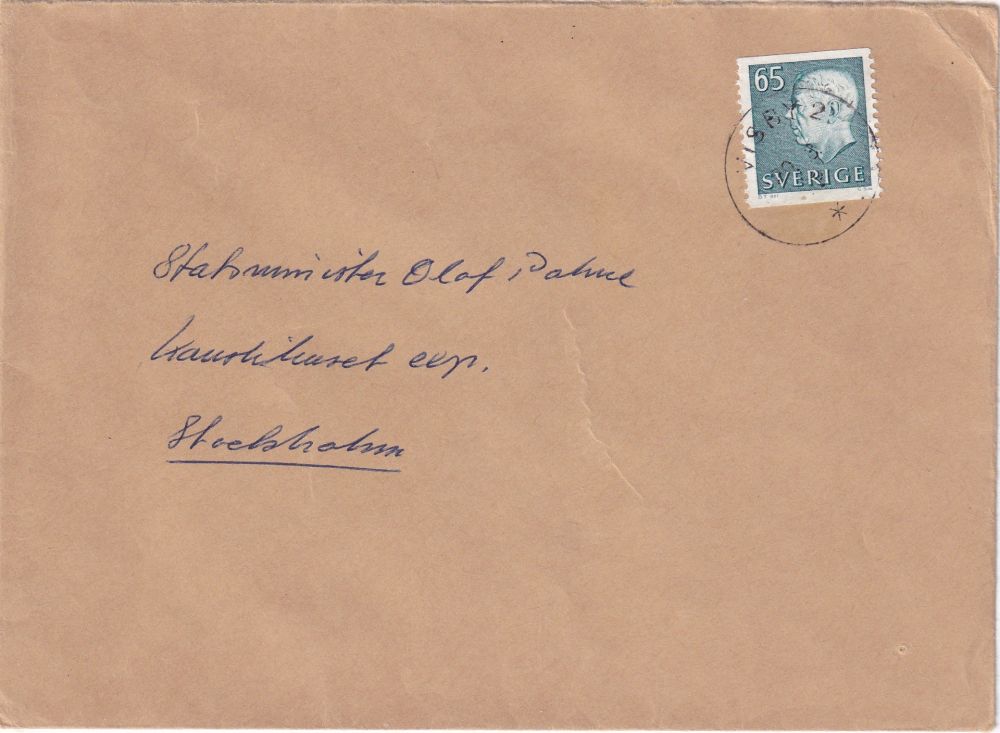 65
SVERIGE
VISBY 2
Statsminister Olof Palme
Kanslihuset
Stockholm